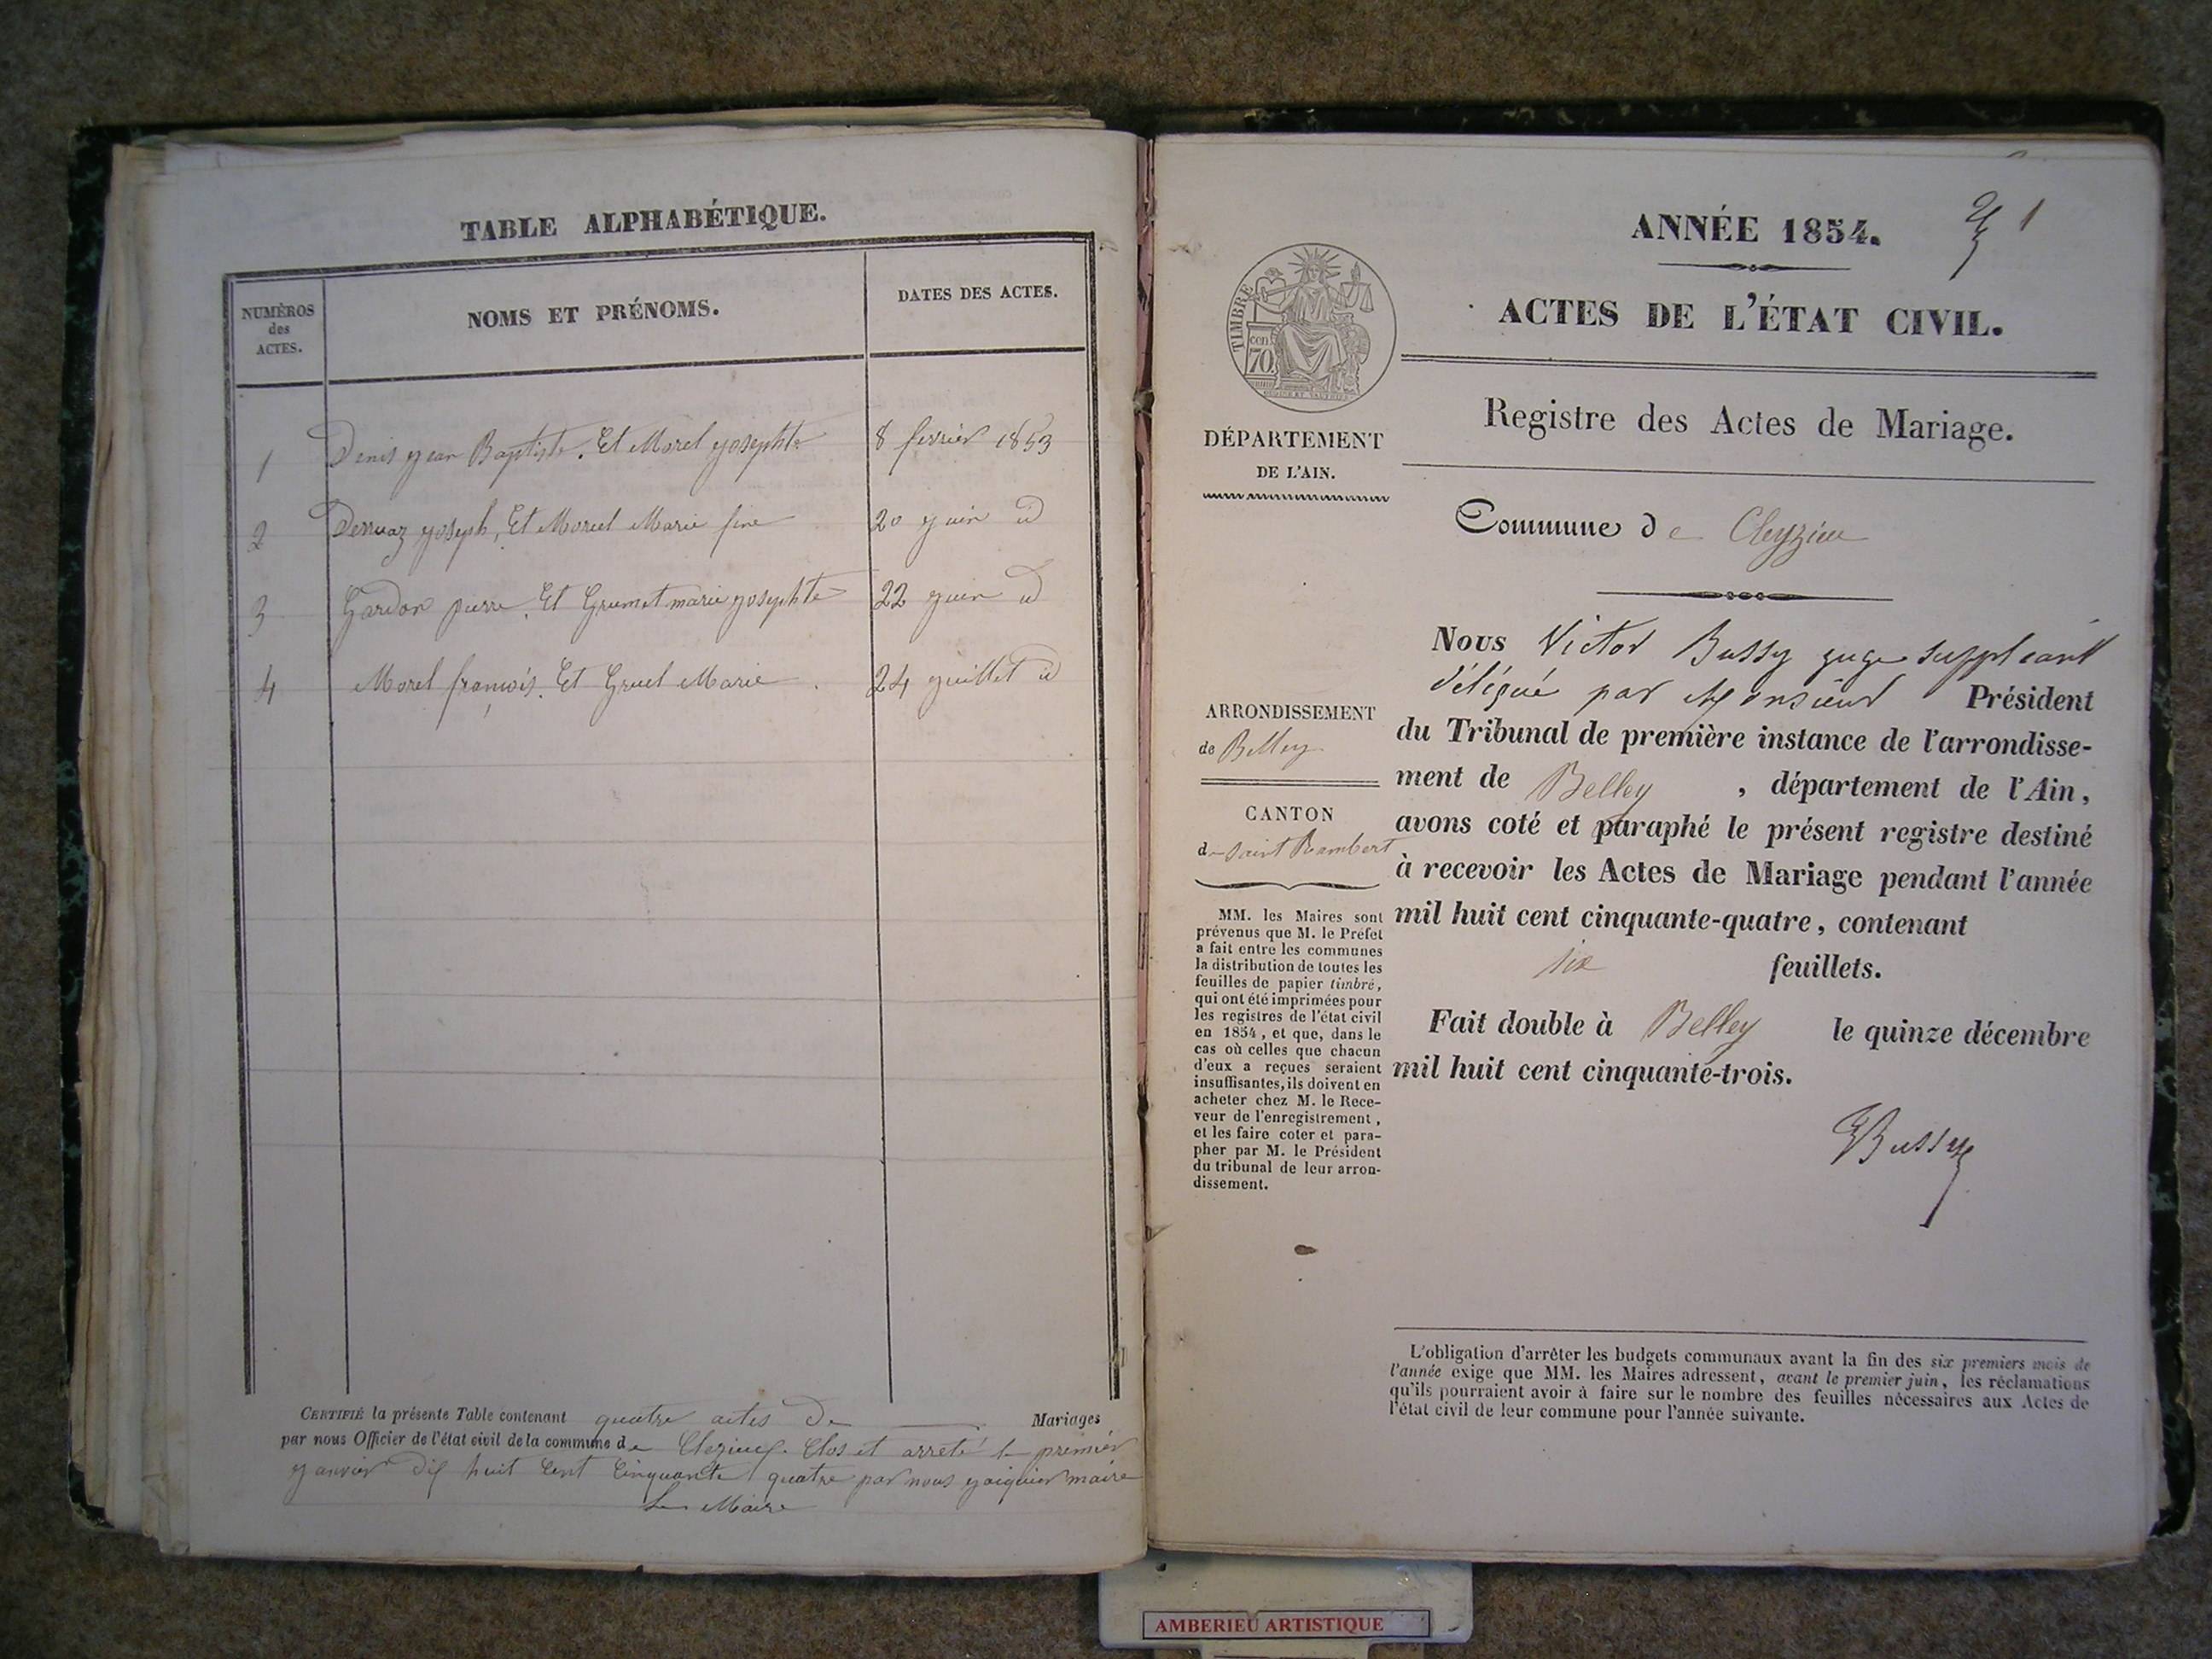 TABLE ALPHABÉTIQUE.
NUMÉROS
des
ACTES.
NOMS ET PRÉNOMS.
DATES DES ACTES.
1 Denis yean Baptiste. Et Morel yosephte 8 fevrier 1853
2 yoseph, Et Morel Marie fine 20 yuin id
3 Gardon pierre. Et Grumet marie yosephte 22 yuin id
4 Morel françois. Et Gruel Marie. 24 yuillet id
CERTIFIÉ la présente Table contenant quatre actes de Mariages
par nous Officier de l'état civil de la commune de Clos et arreté le premier
yanvier dix huit Cent Cinquante quatre par nous maire
Le Maire
1
ANNÉE 1854.
ACTES DE L'ÉTAT CIVIL.
Registre des Actes de Mariage.
TIMBRE
cent.
70.
DÉPARTEMENT
DE L'AIN.
Commune de Cleyzieu
ARRONDISSEMENT
de Belley
CANTON
de saint Rambert
MM. les Maires sont
prévenus que M. le Préfet
a fait entre les communes
la distribution de toutes les
feuilles de papier timbré,
qui ont été imprimées pour
les registres de l'état civil
en 1854, et que, dans le
cas où celles que chacun
d'eux a reçues seraient
insuffisantes, ils doivent en
acheter chez M. le Rece-
veur de l'enregistrement,
et les faire coter et para-
pher par M. le Président
du tribunal de leur arron-
dissement.
Nous Victor Bussy juge suppleant
délégué par Monsieur Président
du Tribunal de première instance de l'arrondisse-
ment de Belley, département de l'Ain,
avons coté et paraphé le présent registre destiné
à recevoir les Actes de Mariage pendant l'année
mil huit cent cinquante-quatre, contenant
six feuillets.
Fait double à Belley le quinze décembre
mil huit cent cinquante-trois.
Bussy
L'obligation d'arrêter les budgets communaux avant la fin des six premiers mois de
l'année exige que MM. les Maires adressent, avant le premier juin, les réclamations
qu'ils pourraient avoir à faire sur le nombre des feuilles nécessaires aux Actes de
l'état civil de leur commune pour l'année suivante.
AMBERIEU ARTISTIQUE